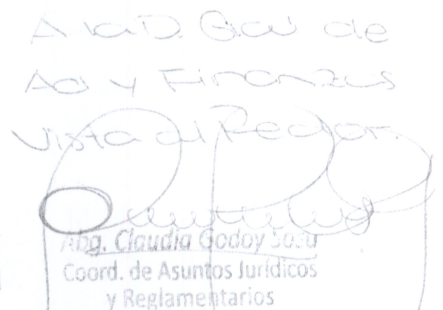 A la D. Gral de
Ad y Finanzas
Vista al Rector.
Abg. Claudia Godoy Sosa
Coord. de Asuntos Jurídicos
y Reglamentarios